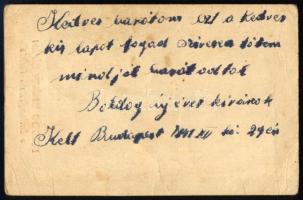 Kedves barátom ezt a kedves
kis lapot fogad szivesen tölem
mindjárt barátodtol
Boldog új évet kivánok
Kelt Budapest 1941 XII hó 29én